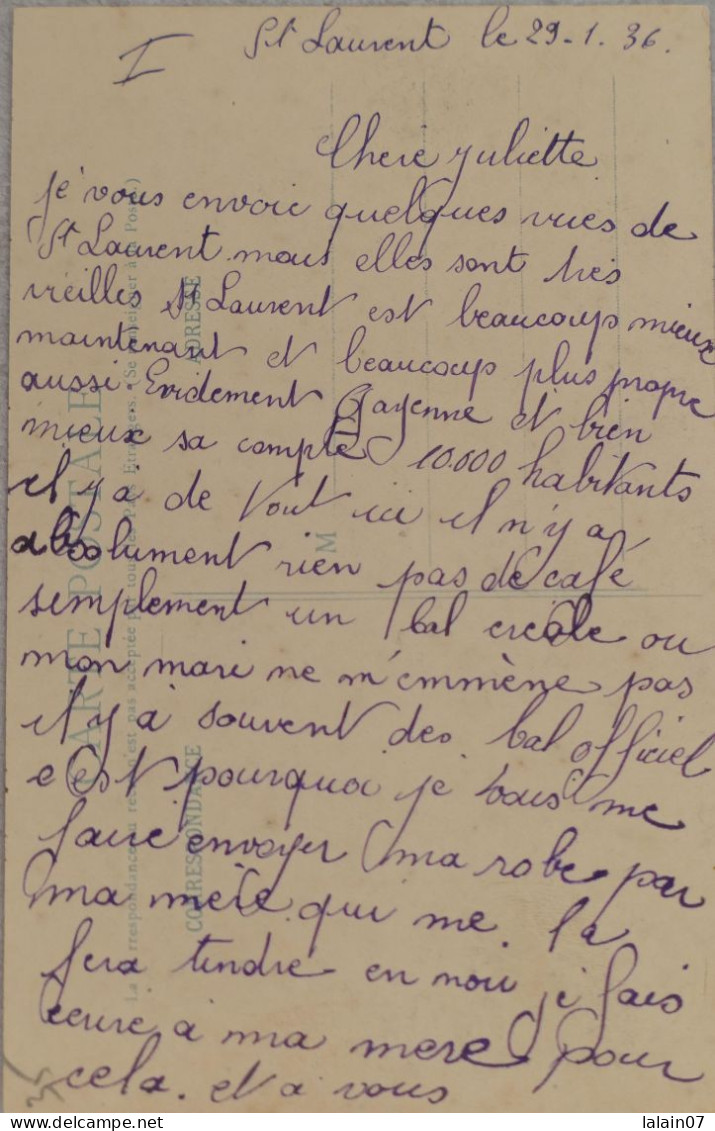 I
St Laurent le 29-1.36.
Chère Juliette
je vous envoie quelques vues de
St Laurent mais elles sont très
vieilles St Laurent est beaucoup mieux
maintenant et beaucoup plus propre
aussi. Evidement Gayenne et bien
mieux sa compte 10.000 habitants
il y a de tout ici il n'y a
absolument rien pas de café
semplement un bal creole ou
mon mari ne m'emmène pas
il y a souvent des bal officiel
c'est pourquoi je vais me
faire envoyer ma robe par
ma mère qui me la
fera tindre en noir je fais
écrire à ma mere pour
cela. et a vous
CARTE POSTALE
La correspondance au recto n'est pas acceptée par tous les Pays Etrangers. (Se renseigner à la Poste.)
CORRESPONDANCE
ADRESSE
M
lalain07